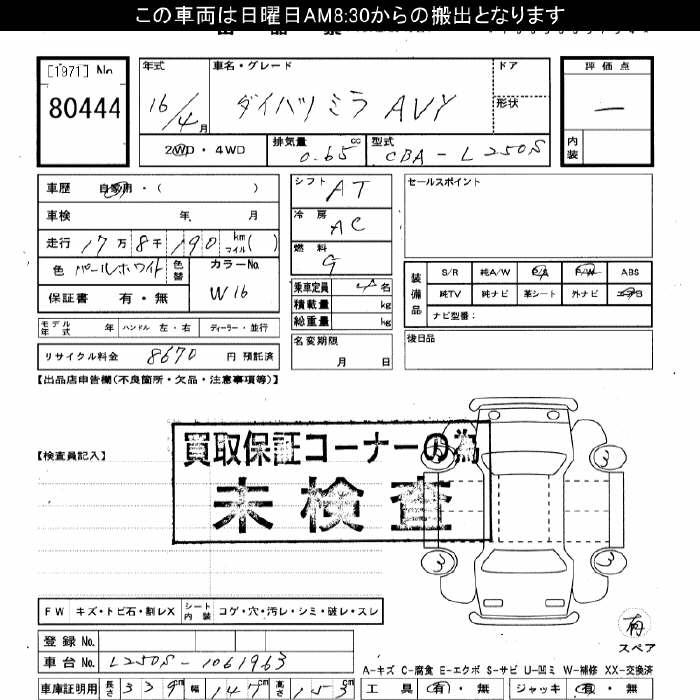 この車両は日曜日AM8:30からの搬出となります
[1971] No
80444
年式
16/4月
車名・グレード
ダイハツ ミラ AVY
ドア
形状
評価点
—
内装
2WD・4WD
排気量 0.65 cc
型式 CBA-L250S
車歴 自家用・( )
車検 年 月
走行 17万8千190 km マイル( )
色 パールホワイト
色替
カラーNo.
W16
保証書 有・無
モデル年式 年 ハンドル 左・右 ディーラー・並行
リサイクル料金 8670 円 預託済
シフト AT
冷房 AC
燃料 G
乗車定員 4名
積載量 kg
総重量 kg
名変期限
月 日
セールスポイント
装備品
S/R 純A/W P/S P/W ABS
純TV 純ナビ 革シート 外ナビ エアB
ナビ型番:
後日品
【出品店申告欄(不良箇所・欠品・注意事項等)】
【検査員記入】
買取保証コーナーの為
未検査
3
3
3
FW キズ・トビ石・割レX
シート内装 コゲ・穴・汚レ・シミ・破レ・スレ
有
スペア
登録 No.
車台 No. L250S-1061963
A-キズ C-腐食 E-エクボ S-サビ U-凹ミ W-補修 XX-交換済
車庫証明用 長さ 339cm 幅 147cm 高さ 153cm
工具 有・無 ジャッキ 有・無